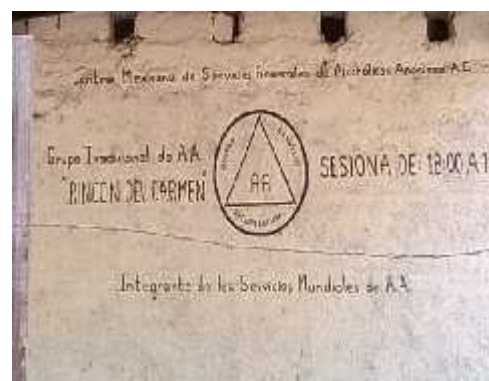 Central Mexicana de Servicios Generales de Alcohólicos Anónimos A.C.
Grupo Tradicional de A.A.
"RINCON DEL CARMEN"
AA
SESIONA DE: 18:00 A 1
Integrante de los Servicios Mundiales de A.A.